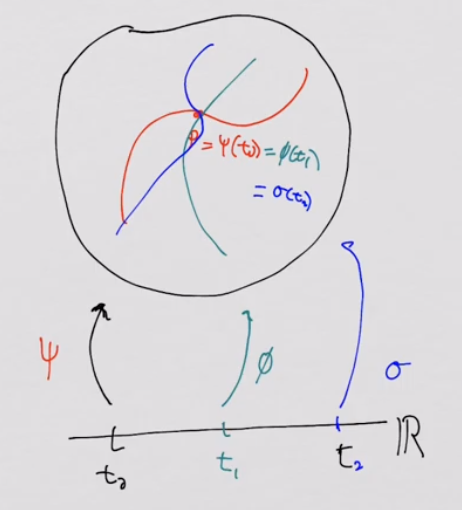 P = ψ(t₀) = φ(t₁)
= σ(t₂)
ψ φ σ
ℝ
t₀ t₁ t₂